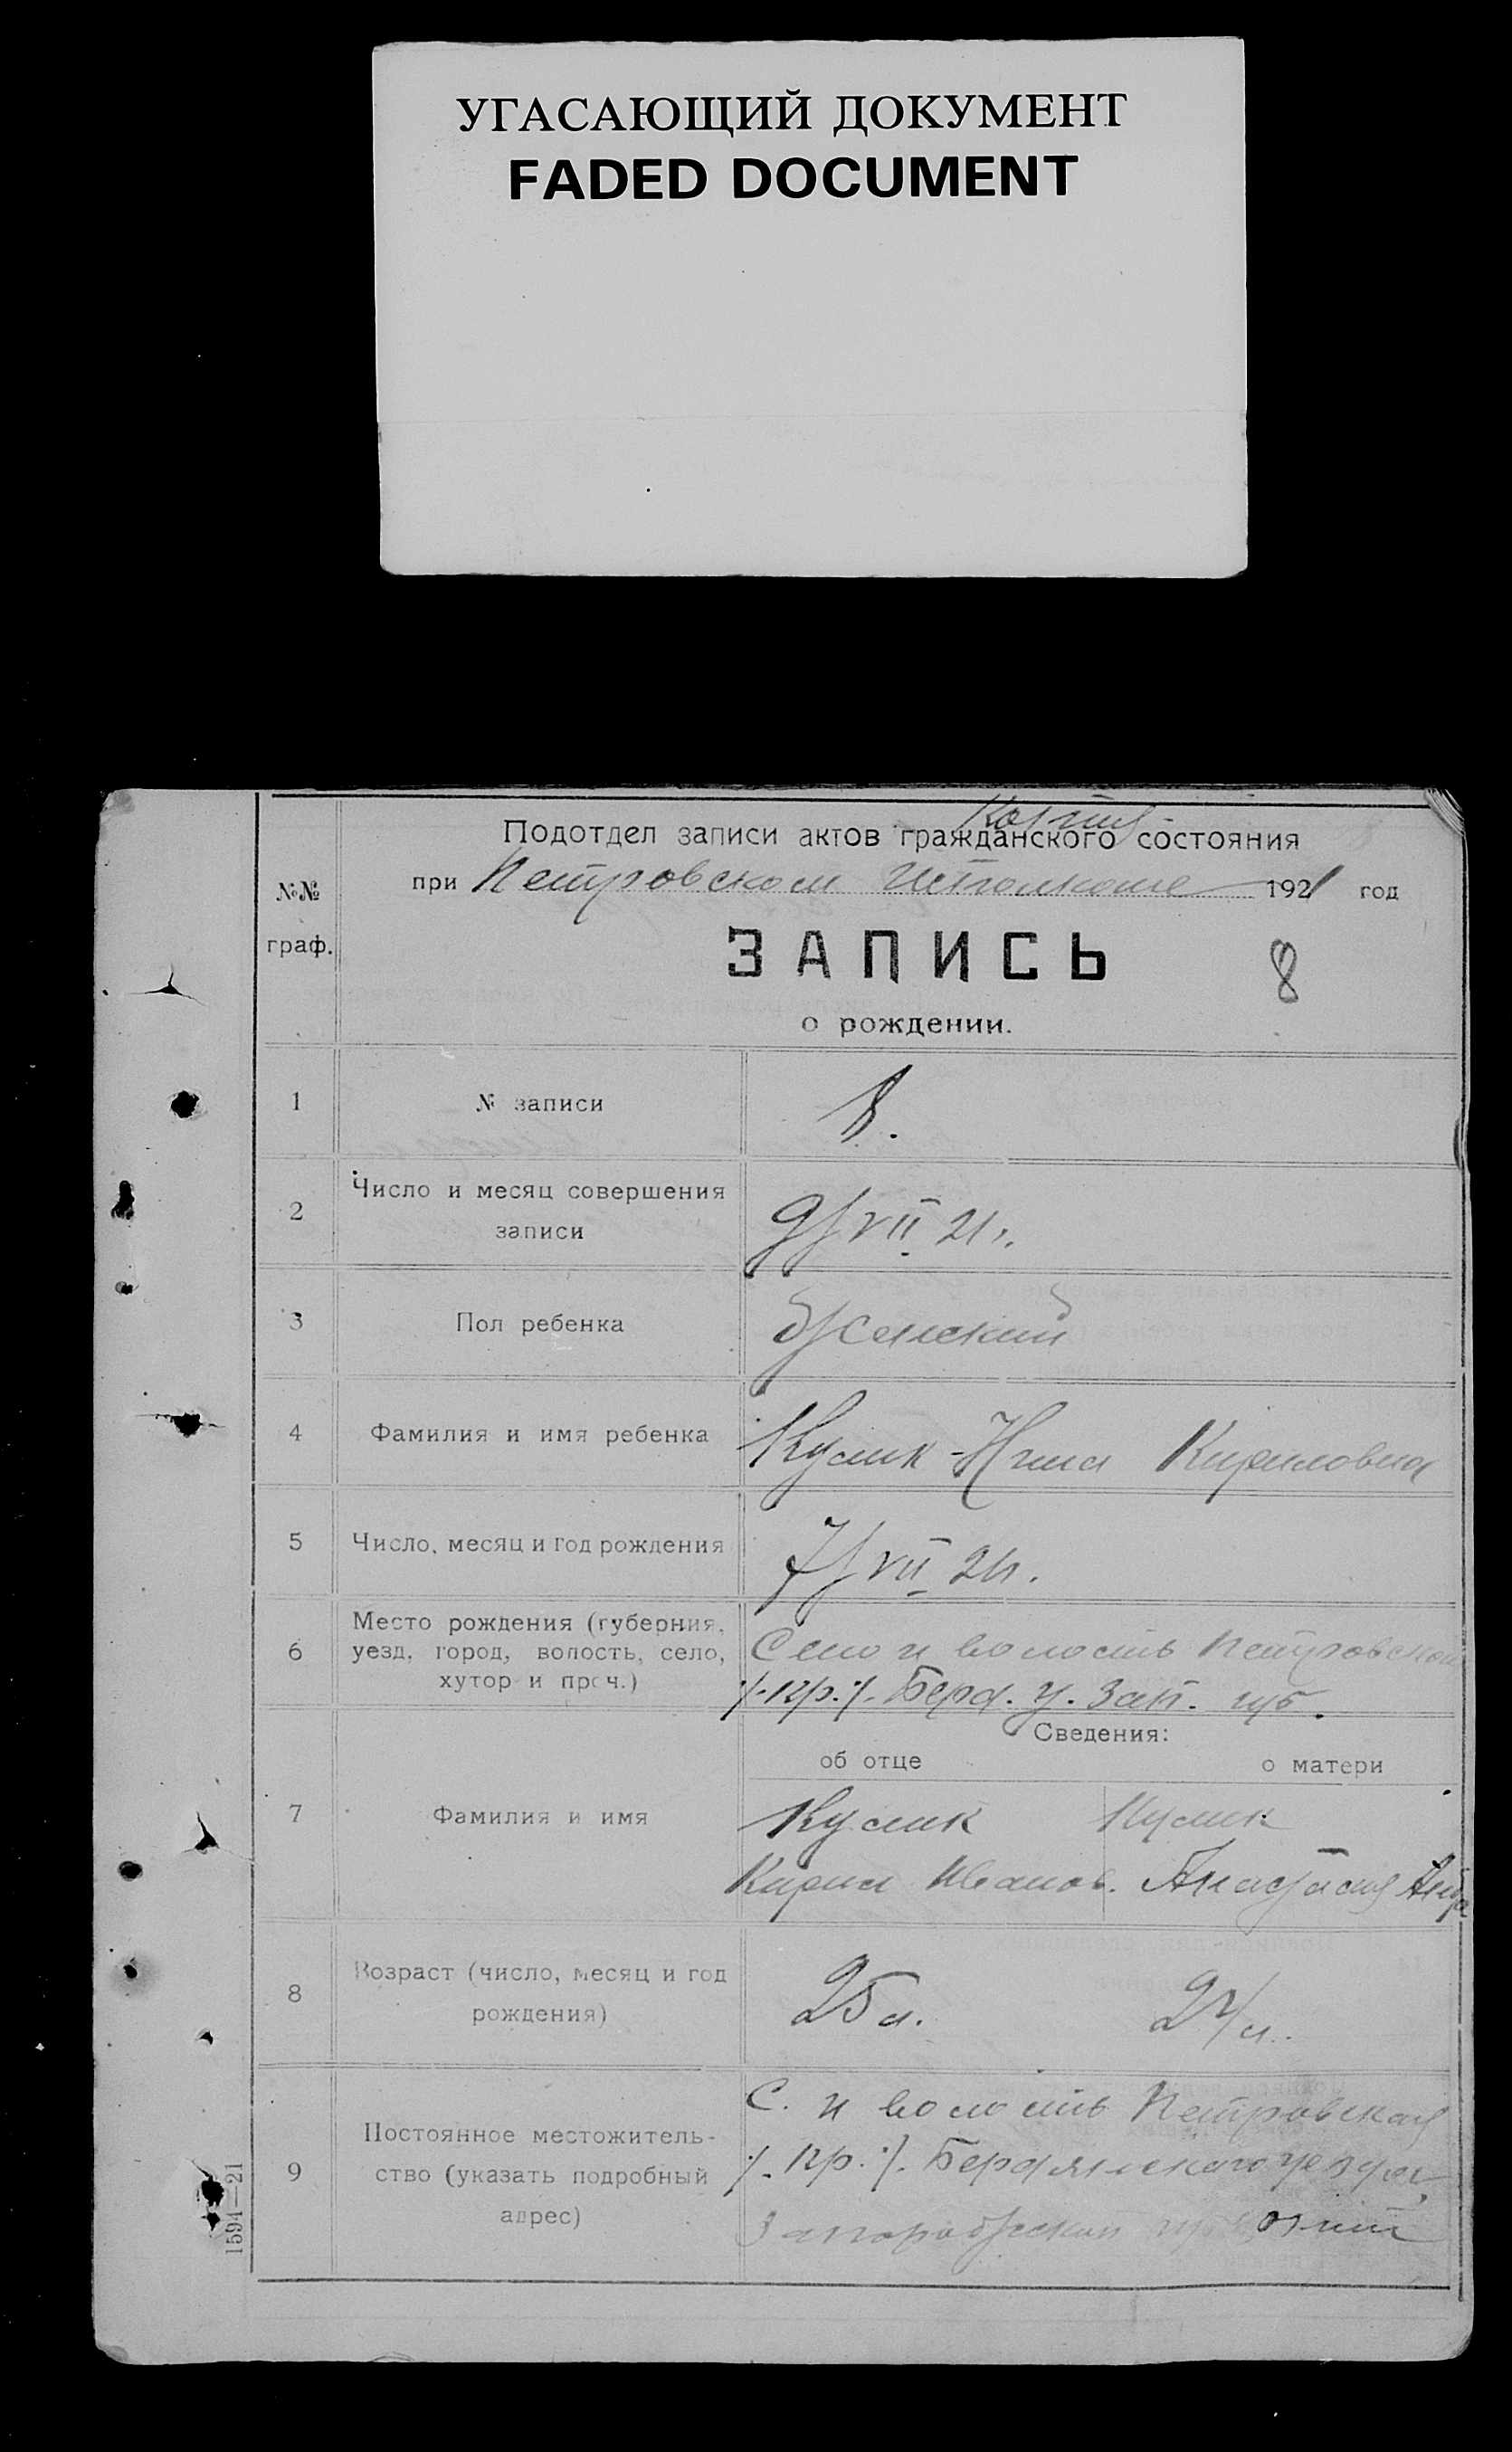 УГАСАЮЩИЙ ДОКУМЕНТ
FADED DOCUMENT
Копия
Подотдел записи актов гражданского состояния
при Петровском Исполкоме 1921 год
№№
граф.
ЗАПИСЬ
8
о рождении.
1 № записи 8.
2 Число и месяц совершения
записи 9/VII 21 г.
3 Пол ребенка Женский
4 Фамилия и имя ребенка Кулик Нина Кириловна
5 Число, месяц и год рождения 7/VII 21 г.
6 Место рождения (губерния,
уезд, город, волость, село,
хутор и проч.)
Село и волость Петровской
/. Кр. /. Берд. у. Зап. губ.
Сведения:
об отце о матери
7 Фамилия и имя
Кулик Кулик
Кирил Иванов. Анастасия
8 Возраст (число, месяц и год
рождения)
25 л. л.
9 Постоянное местожитель-
ство (указать подробный
адрес)
С. и волость Петровская
/. Кр. /. Бердянского уезда,
Запорожской
1594—21